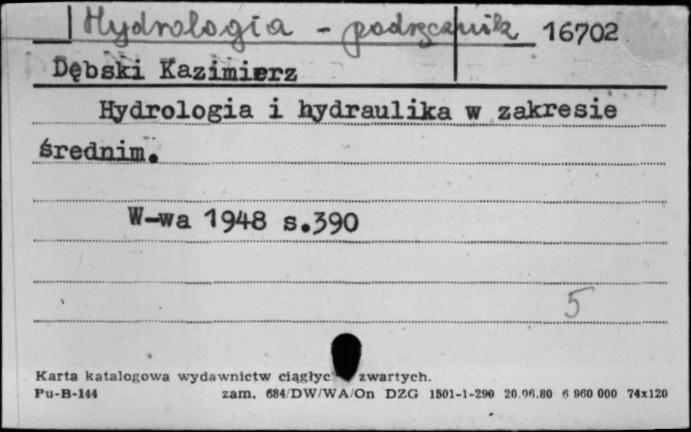 Hydrologia - podręcznik 16702
Dębski Kazimierz
Hydrologia i hydraulika w zakresie
średnim.
W-wa 1948 s.390
5
Karta katalogowa wydawnictw ciągłyc zwartych.
Pu-B-144 zam. 684/DW/WA/On DZG 1501-1-290 20.06.80 6 960 000 74x120